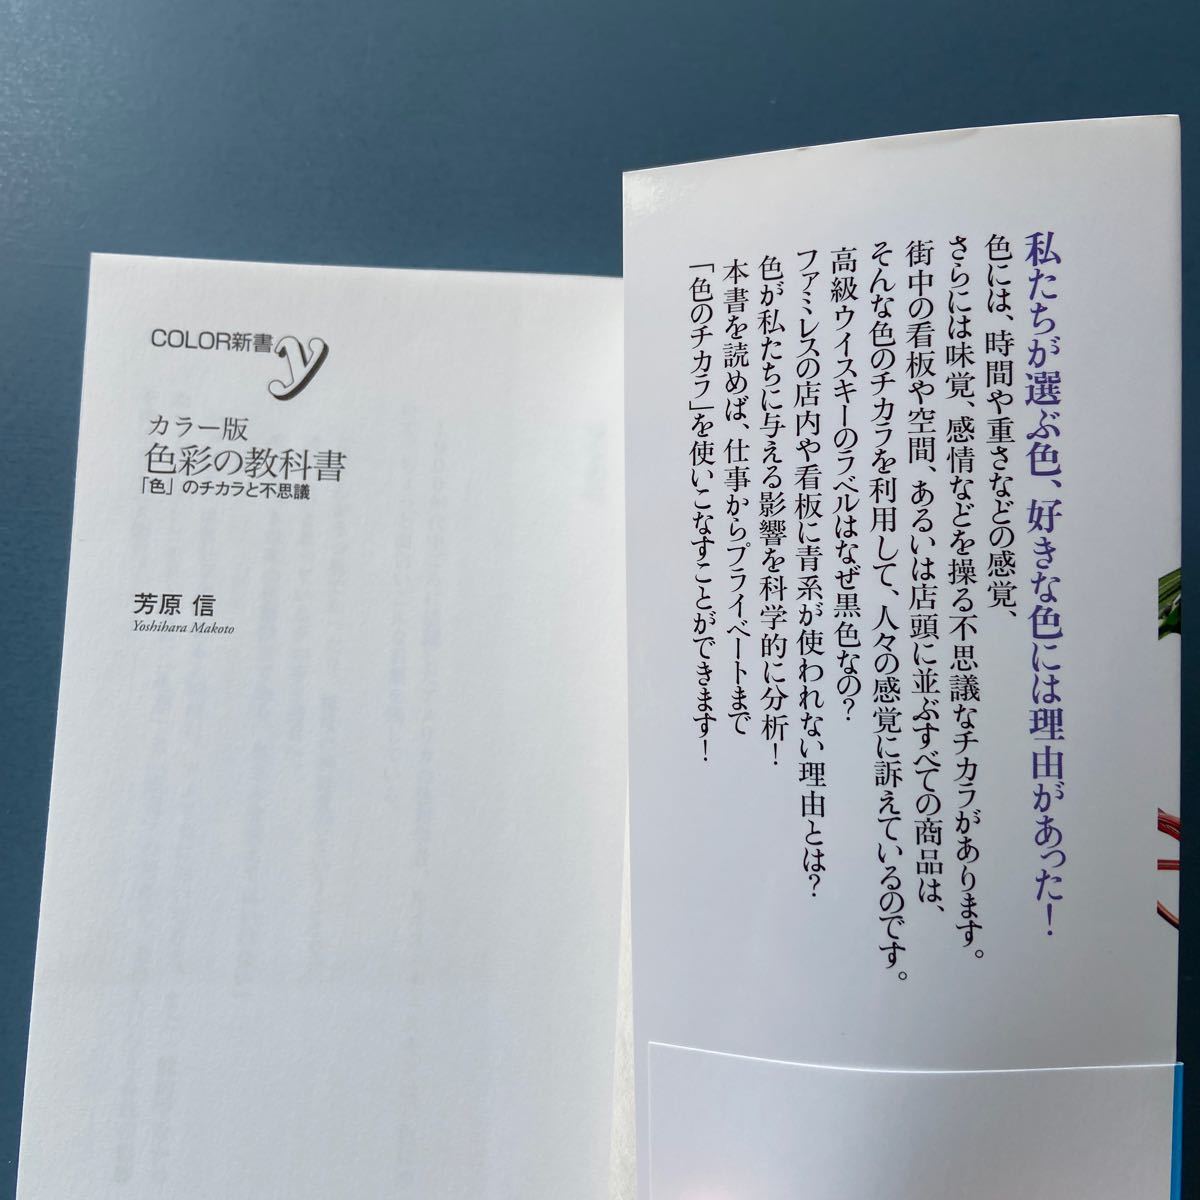 COLOR新書y
カラー版
色彩の教科書
「色」のチカラと不思議
芳原 信
Yoshihara Makoto
私たちが選ぶ色、好きな色には理由があった！
色には、時間や重さなどの感覚、
さらには味覚、感情などを操る不思議なチカラがあります。
街中の看板や空間、あるいは店頭に並ぶすべての商品は、
そんな色のチカラを利用して、人々の感覚に訴えているのです。
高級ウイスキーのラベルはなぜ黒色なの？
ファミレスの店内や看板に青系が使われない理由とは？
色が私たちに与える影響を科学的に分析！
本書を読めば、仕事からプライベートまで
「色のチカラ」を使いこなすことができます！